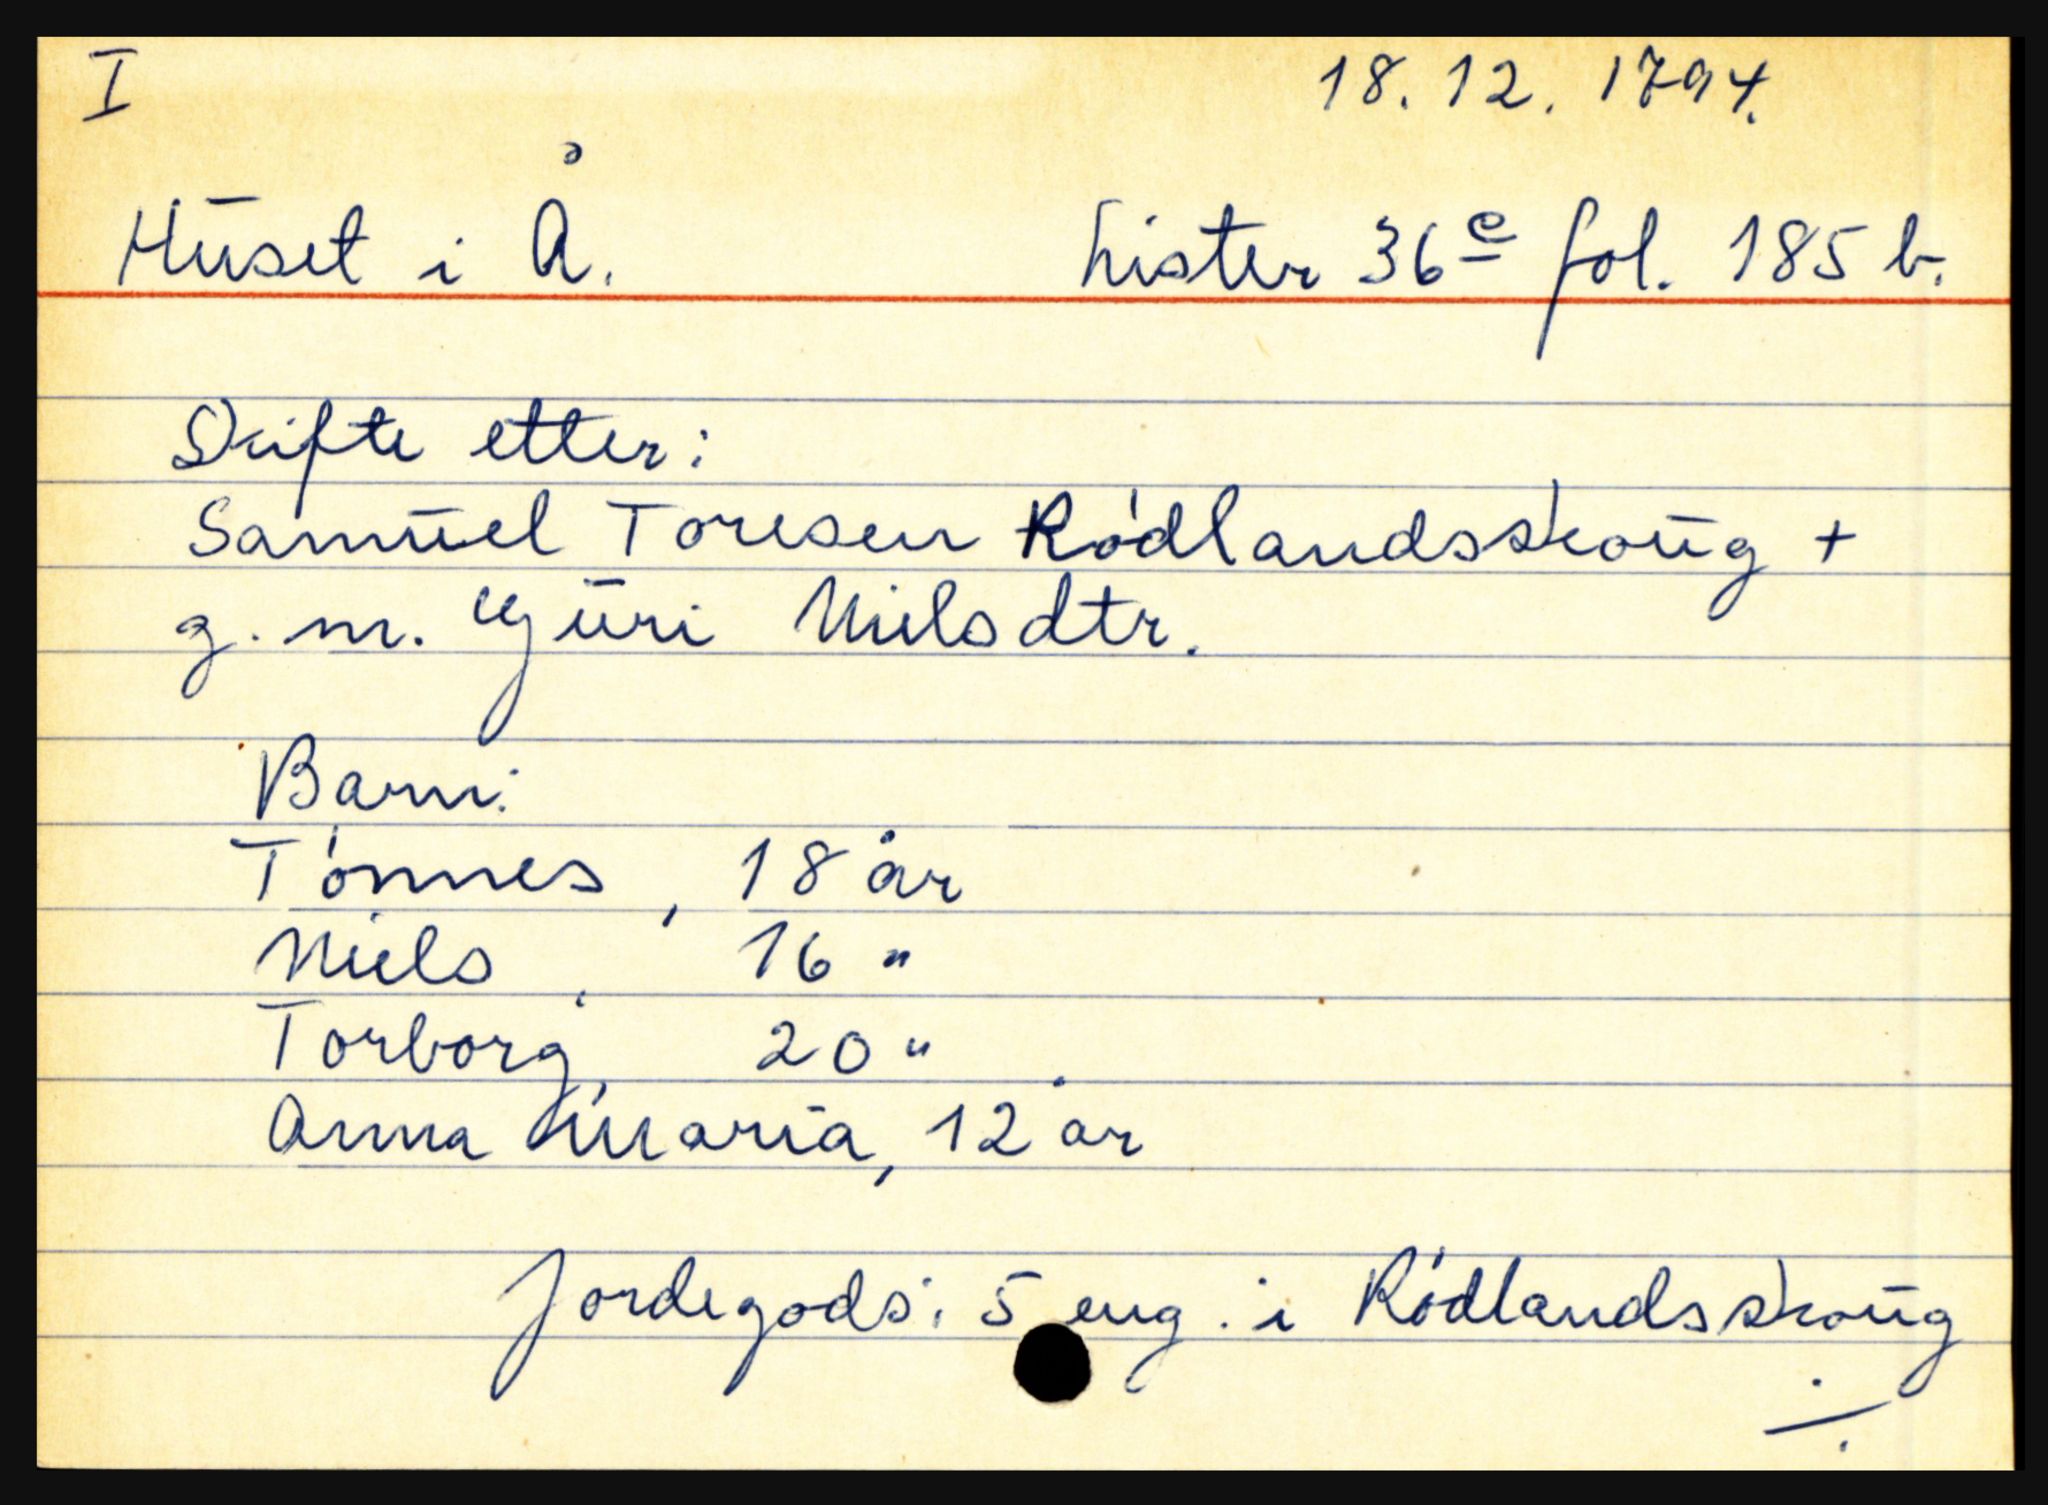 I 18.12.1794.
Huset i Å. Lister 36e fol. 185 b.
Skifte etter:
Samuel Toresen Rødlandsskoug +
g.m. Gjuri Nielsdtr.
Barn:
Tønnes, 18 år
Niels, 16 "
Torborg, 20 "
Anna Maria, 12 år
Jordegods: 5 eng. i Rødlandsskoug